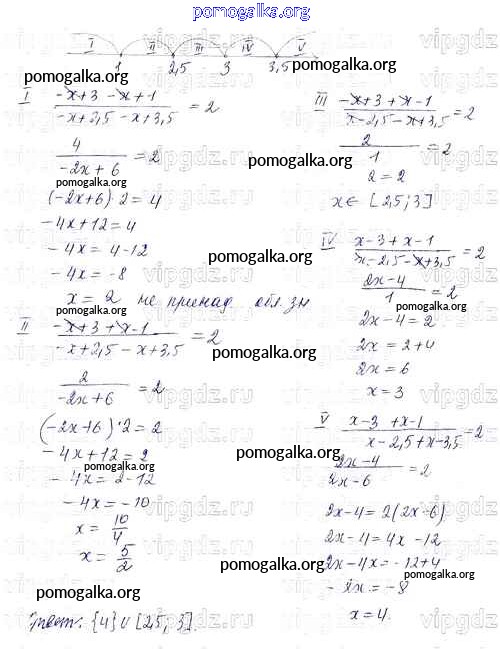 pomogalka.org
I II III IV V
1 2,5 3 3,5
I (-x+3-x+1)/(-x+2,5-x+3,5) = 2
4/(-2x+6) = 2
(-2x+6)·2=4
-4x+12=4
-4x=4-12
-4x=-8
x=2 не принад. обл. зн
II (-x+3+x-1)/(-x+2,5-x+3,5) = 2
2/(-2x+6) = 2
(-2x+6)·2=2
-4x+12=2
-4x=2-12
-4x=-10
x=10/4
x=5/2
III (-x+3+x-1)/(x-2,5-x+3,5) = 2
2/1 = 2
2=2
x∈[2,5;3]
IV (x-3+x-1)/(x-2,5-x+3,5) = 2
(2x-4)/1 = 2
2x-4=2
2x=2+4
2x=6
x=3
V (x-3+x-1)/(x-2,5+x-3,5) = 2
(2x-4)/(2x-6) = 2
2x-4=2(2x-6)
2x-4=4x-12
2x-4x=-12+4
-2x=-8
x=4.
Ответ: {4}∪[2,5;3].
pomogalka.org
vipgdz.ru